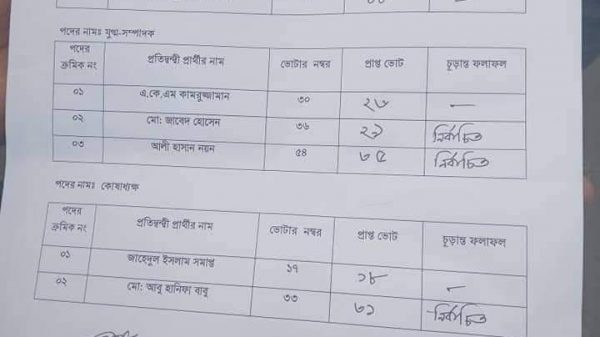 পদের নামঃ যুগ্ম-সম্পাদক
পদের ক্রমিক নং প্রতিদ্বন্দ্বী প্রার্থীর নাম ভোটার নম্বর প্রাপ্ত ভোট চূড়ান্ত ফলাফল
০১ এ.কে.এম কামরুজ্জামান ৩০ ২৬ —
০২ মো: জাবেদ হোসেন ৩৬ ২৯ নির্বাচিত
০৩ আলী হাসান নয়ন ৫৪ ৩৫ নির্বাচিত
পদের নামঃ কোষাধ্যক্ষ
পদের ক্রমিক নং প্রতিদ্বন্দ্বী প্রার্থীর নাম ভোটার নম্বর প্রাপ্ত ভোট চূড়ান্ত ফলাফল
০১ জাহেদুল ইসলাম সমাপ্ত ১৭ ১৮ –
০২ মো: আবু হানিফা বাবু ৩৩ ৩১ নির্বাচিত